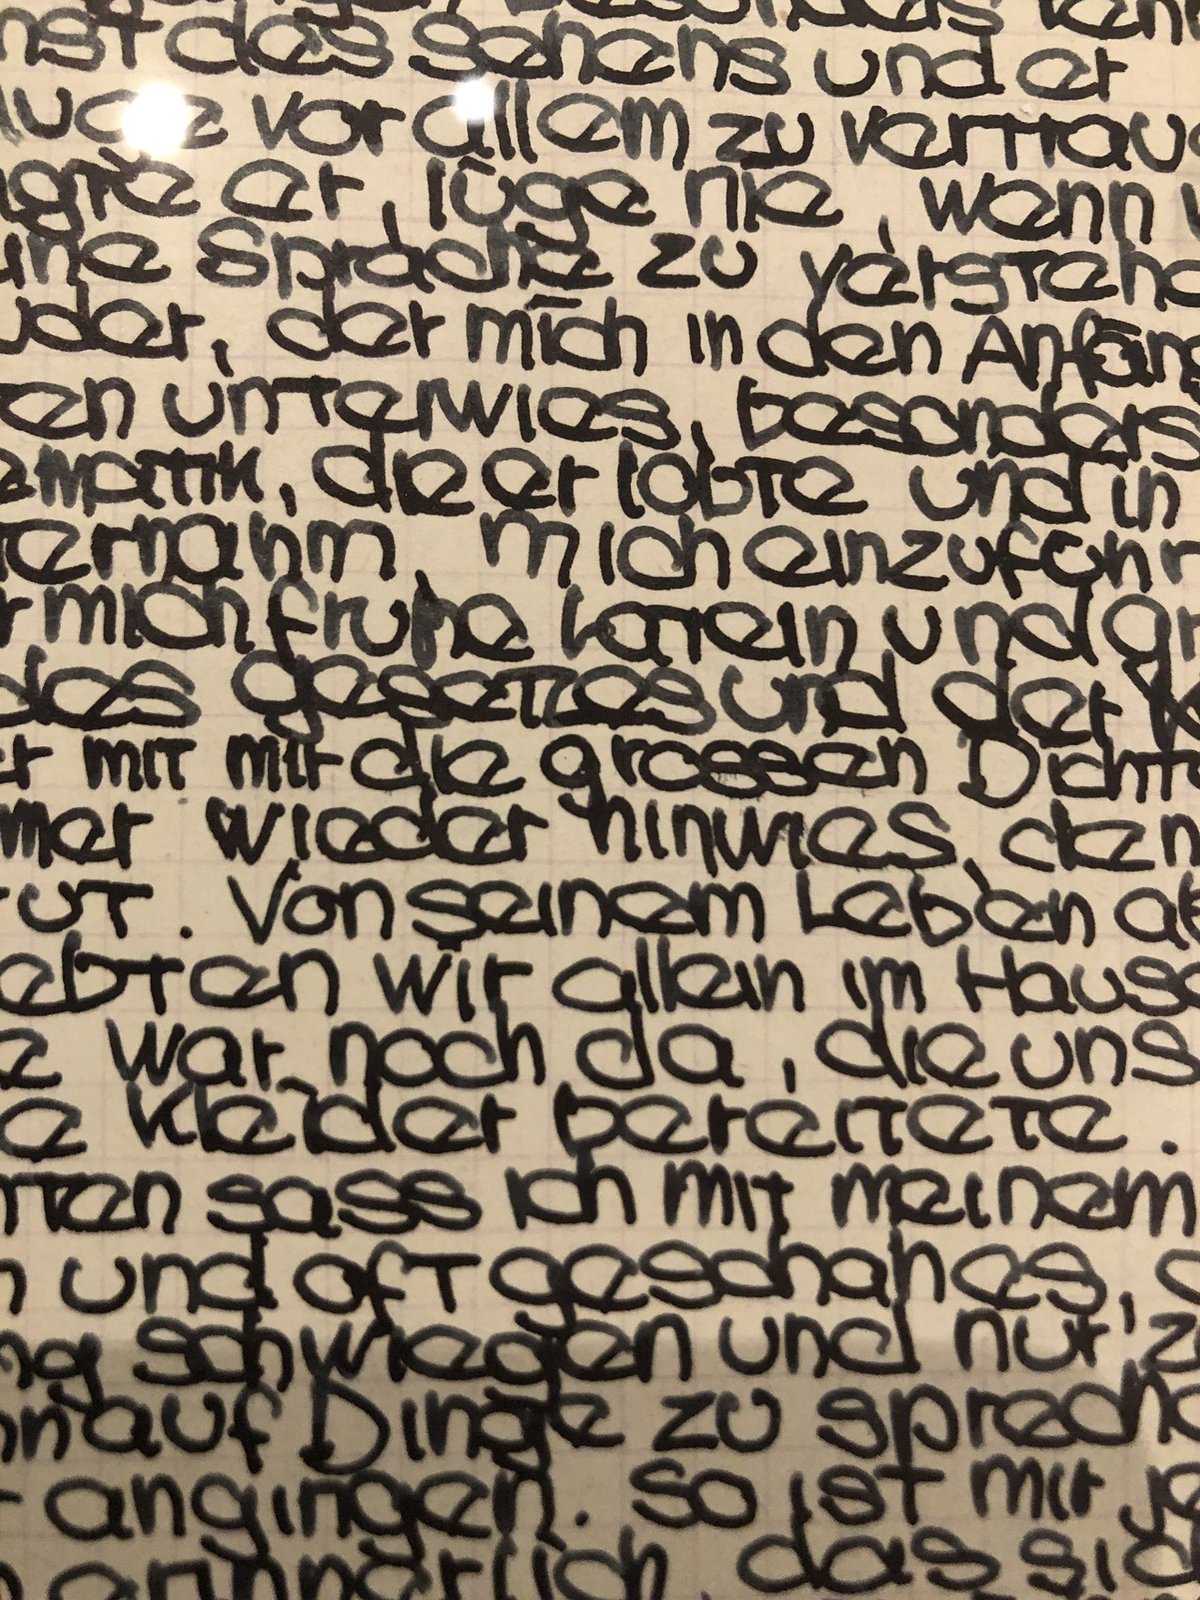 nst des sehens und er
Auge vor allem zu vertrau
agte er, lüge nie, wenn
eine Sprache zu verstehe
uder, der mich in den Anfäng
ten unterwies, besonders
ematik, die er lobte und in
ternahm, mich einzuführ
r mich fruhe Latein und gr
des gesetzes und der K
er mit mir die grossen Dichte
mer wieder hinwies, den
tut. Von seinem Leben ab
ebten wir allein im Hause
e war noch da, die uns
e Kleider bereitete.
tten sass ich mit meinem
n und oft geschah es, d
ng schwiegen und nur, z
nn auf Dinge zu spreche
angingen. So ist mir, je
das sic